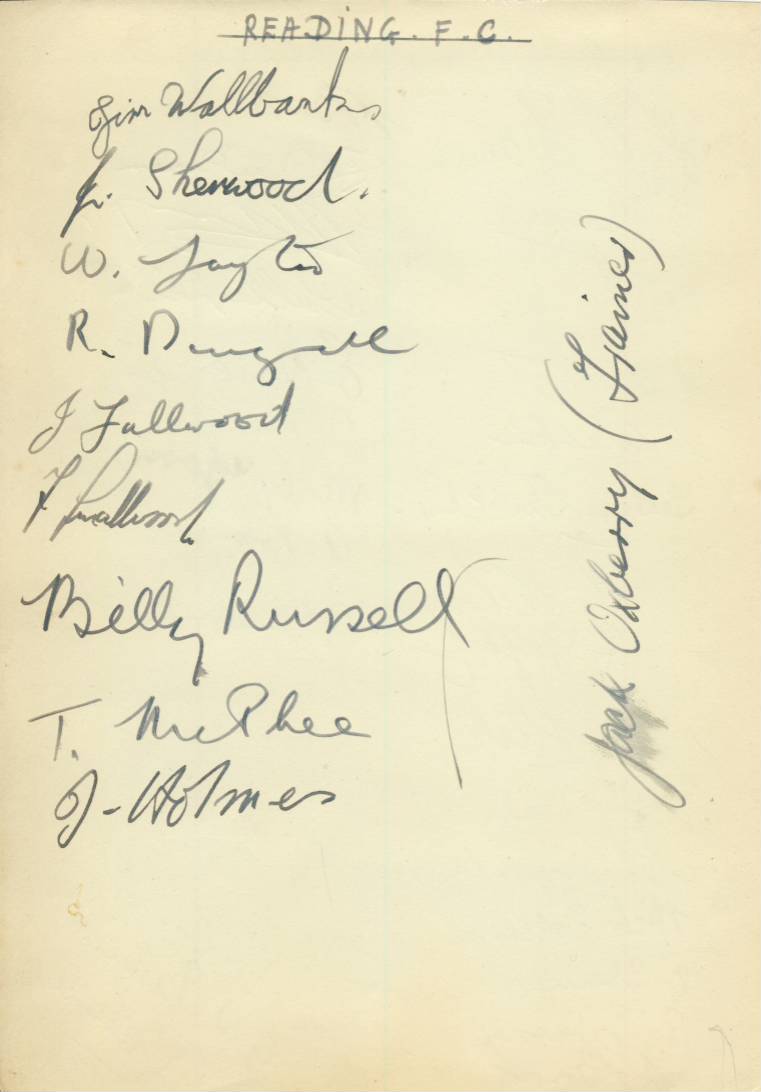 READING. F.C.
Jim Wallbanks
J. Sherwood.
W. Layton
R. Dougall
J Fullwood
Billy Russell
T. McPhee
J. Holmes
Jack Oxberry (Trainer)